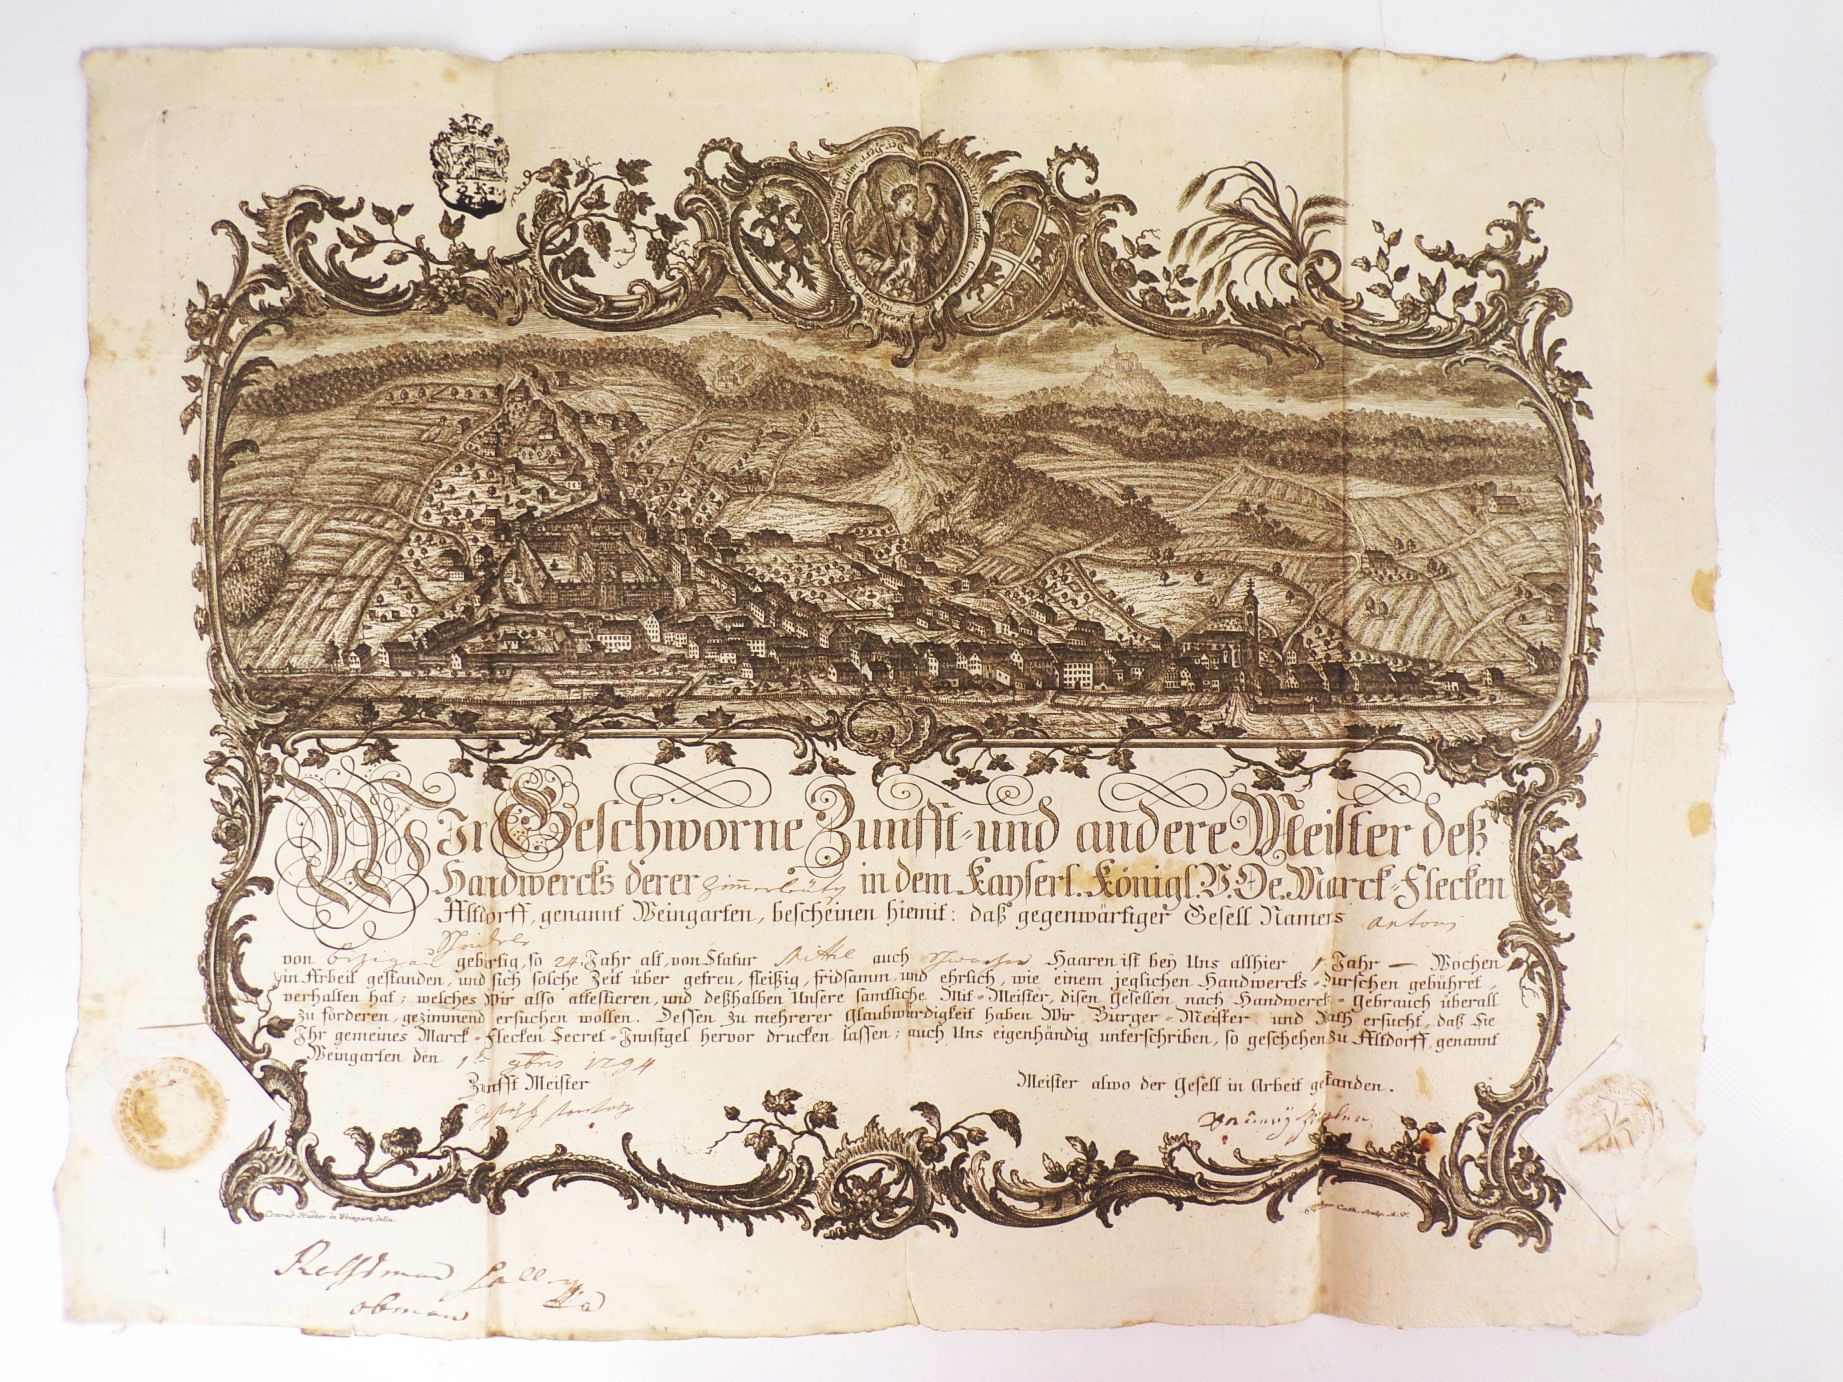 2 Kr.
WIr Geschworne Zunfft-und andere Meister deß
Handwercks derer Zimmerleüth in dem Kayserl. Königl. V. Oe. Marck-Flecken
Altdorff, genannt Weingarten, bescheinen hiemit: daß gegenwärtiger Gesell Namens antoni
von gebürtig, so 24 Jahr alt, von Statur Mittl auch schwarzen Haaren ist bey Uns allhier 1 Jahr — Wochen
in Arbeit gestanden, und sich solche Zeit über getreu, fleißig, fridsamm, und ehrlich, wie einem jeglichen Handwercks-Purschen gebühret,
verhalten hat; welches Wir also attestieren, und deßhalben Unsere samtliche Mit-Meister, disen Gesellen nach Handwercks-Gebrauch überall
zu förderen, gezimmend ersuchen wollen. Dessen zu mehrerer Glaubwürdigkeit haben Wir Burger-Meister und Rath ersucht, daß Sie
Ihr gemeines Marck-Flecken Secret-Innsigel hervor drucken lassen; auch Uns eigenhändig unterschriben, so geschehen zu Altdorff, genannt
Weingarten den 1ten 9bris 1794
Zunfft Meister
Meister alwo der Gesell in Arbeit gestanden.
Conrad Hueber in Weingart. delin.
Cath. Sculp. A. V.
obman